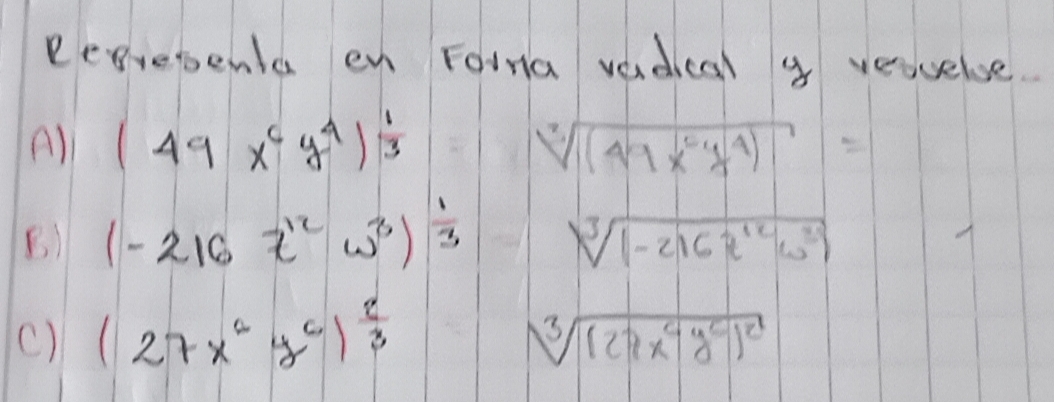 Representa en Forma radical y resuelve..
A) (49 x⁶ y⁴)^{1/3} = ∛(49x⁶y⁴) =
B) (-216 z¹² w³)^{1/3} ∛(-216z¹²w³)
C) (27x⁶ y⁶)^{2/3} = ∛(27x⁶y⁶)²